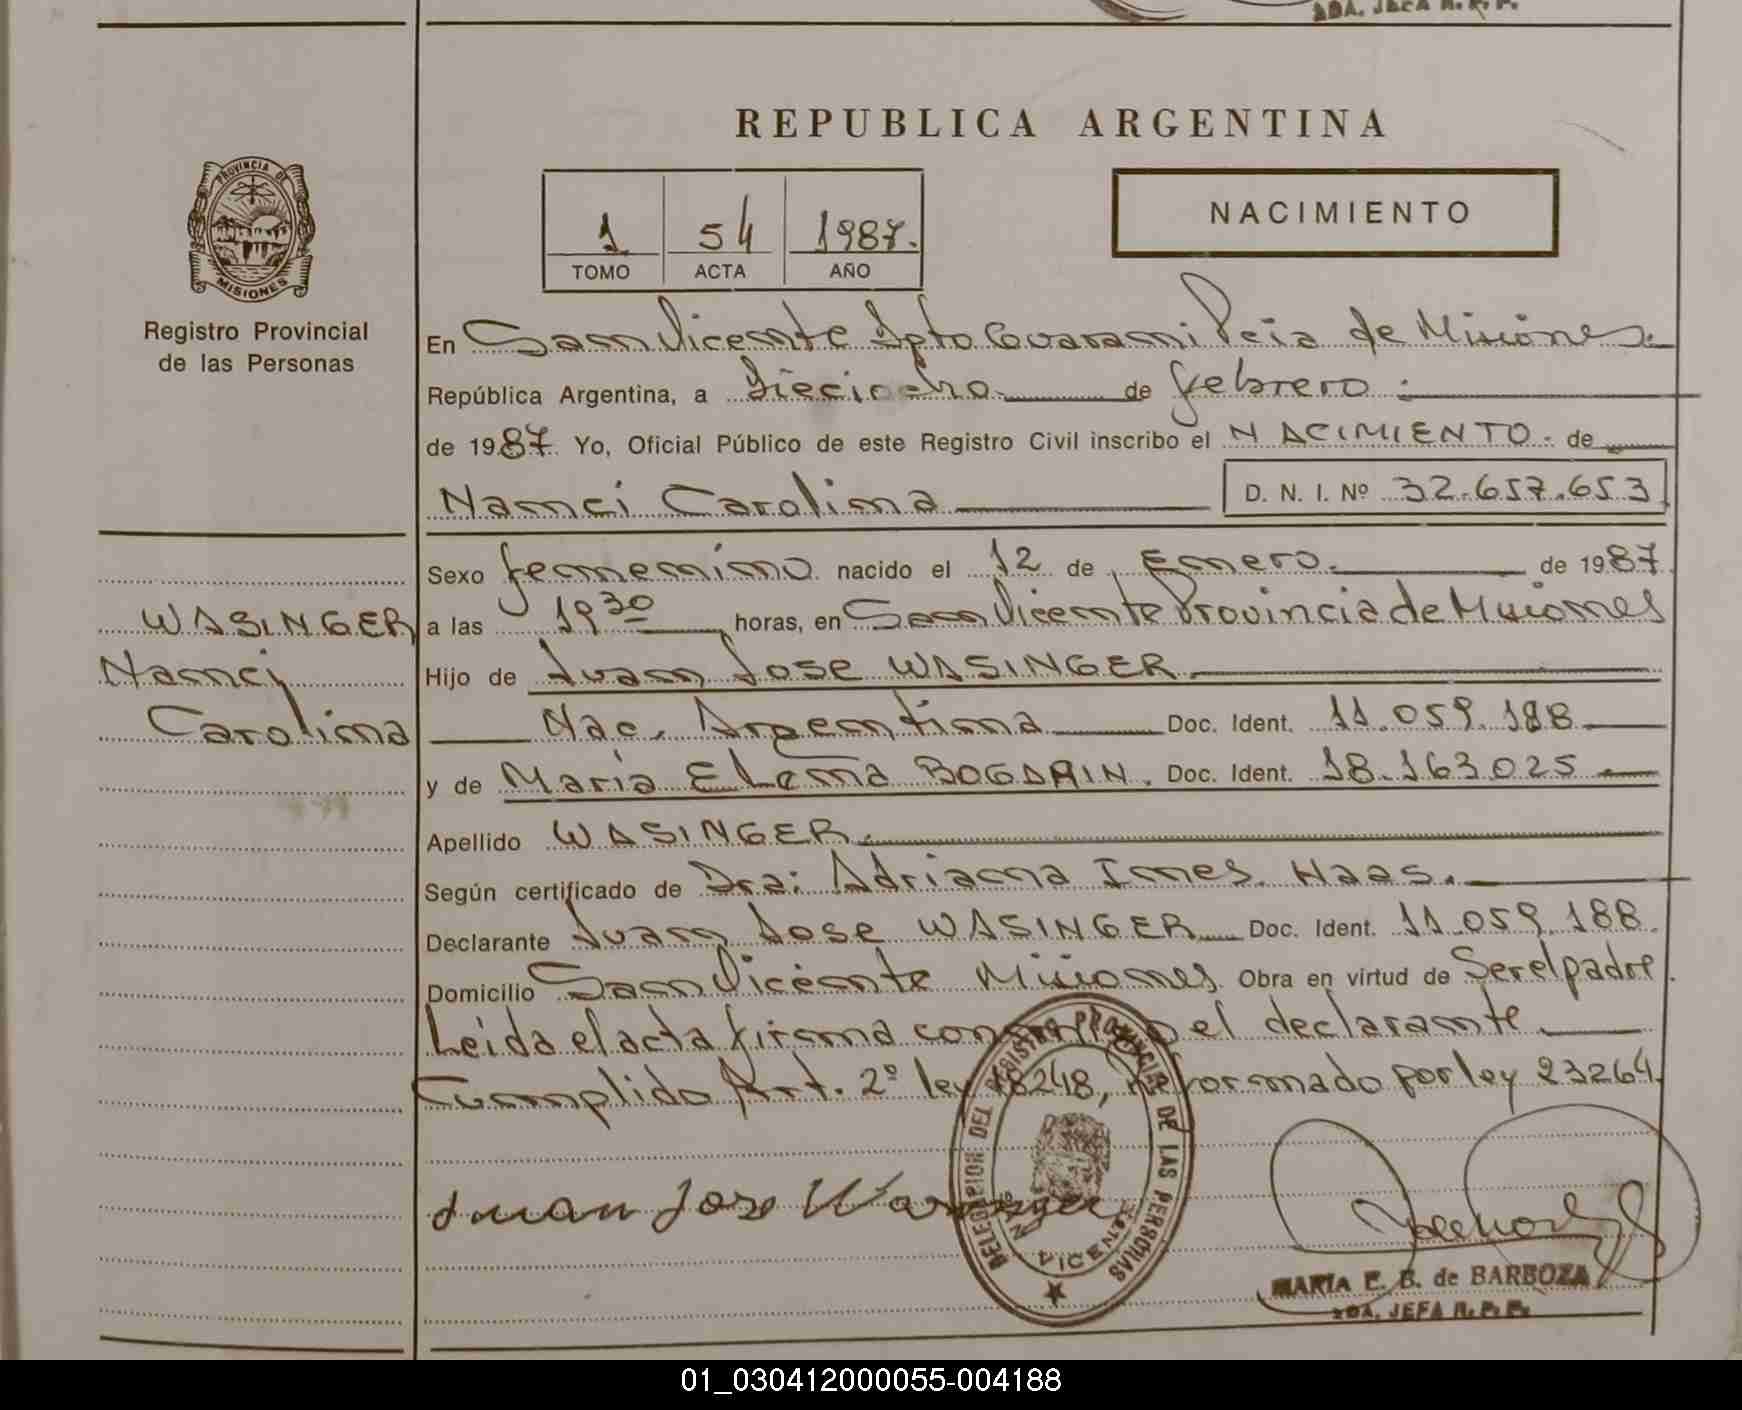 ADA. JEFA R. P. P.
REPUBLICA ARGENTINA
PROVINCIA DE
MISIONES
Registro Provincial
de las Personas
1 54 1987.
TOMO ACTA AÑO
NACIMIENTO
En San Vicente Dpto Guarani Pcia de Misiones.
República Argentina, a Dieciocho de febrero.
de 1987. Yo, Oficial Público de este Registro Civil inscribo el NACIMIENTO. de
Nanci Carolina D. N. I. Nº 32.657.653
Sexo femenino nacido el 12 de Enero. de 1987.
WASINGER
a las 19 30 horas, en San Vicente Provincia de Misiones
Nanci
Hijo de Juan Jose WASINGER
Carolina
Nac. Argentina Doc. Ident. 11.059.188
y de Maria Elena BOGDAIN. Doc. Ident. 18.163.025
Apellido WASINGER.
Según certificado de Dra: Adriana Ines. Haas.
Declarante Juan Jose WASINGER Doc. Ident. 11.059.188.
Domicilio San Vicente Misiones Obra en virtud de Ser el padre.
Leida el acta firma conmigo el declarante
Cumplido Art. 2º ley 18248, Reformado por ley 23264.
Juan Jose Wasinger
DELEGACION DEL REGISTRO PROVINCIAL DE LAS PERSONAS
VICENTE
MARIA E. B. de BARBOZA
ADA. JEFA R. P. P.
01_030412000055-004188